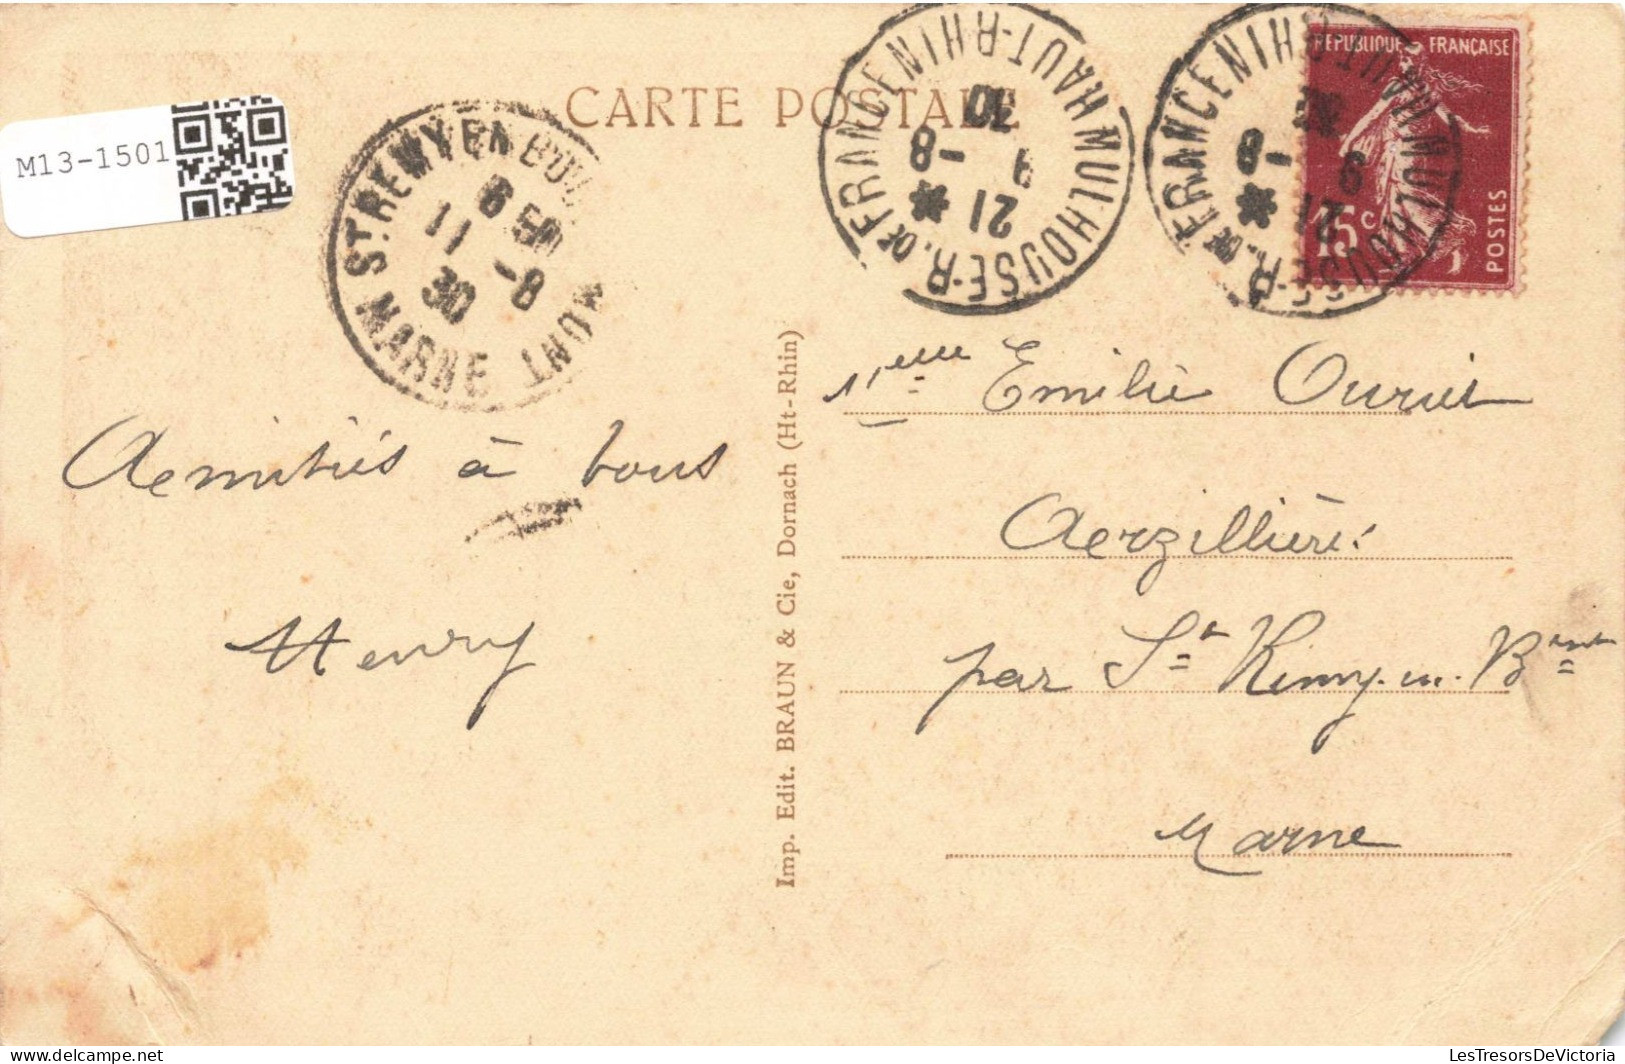 M13-1501
CARTE POSTALE
MULHOUSE-R. DE FRANCE
HAUT-RHIN
21
9 -8
30
MULHOUSE-R. DE FRANCE
HAUT-RHIN
21
9 -8
REPUBLIQUE FRANÇAISE
15 c.
POSTES
ST REMY EN
MARNE
6 50
11 -8
30
Imp. Edit. BRAUN & Cie, Dornach (Ht-Rhin)
Amitiés à tous
Henry
Emilie
Arzillières
par St Remy. en. Bmont
Marne
LesTresorsDeVictoria